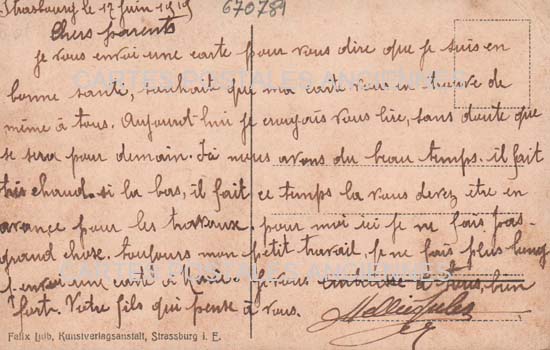 Strasbourg le 17 juin 1919
670789
Chers parents
je vous envoi une carte pour vous dire que je suis en
bonne santé, souhait que ma carte vous en trouve de
même à tous. Aujourd-hui je croyais vous lire, sans doute que
se sera pour demain. Ici nous avons du beau temps. il fait
très chaud. si la bas, il fait ce temps la vous devez être en
avance pour les travaux. pour moi ici je ne fais pas
grand chose. toujours mon p'tit travail, je ne fais plus long
j'envoi une carte à je vous embrasse à tous bien
fort. Votre fils qui pense à vous.
Jules
CARTES POSTALES ANCIENNES
CARTES POSTALES ANCIENNES
Felix Luib, Kunstverlagsanstalt, Strassburg i. E.